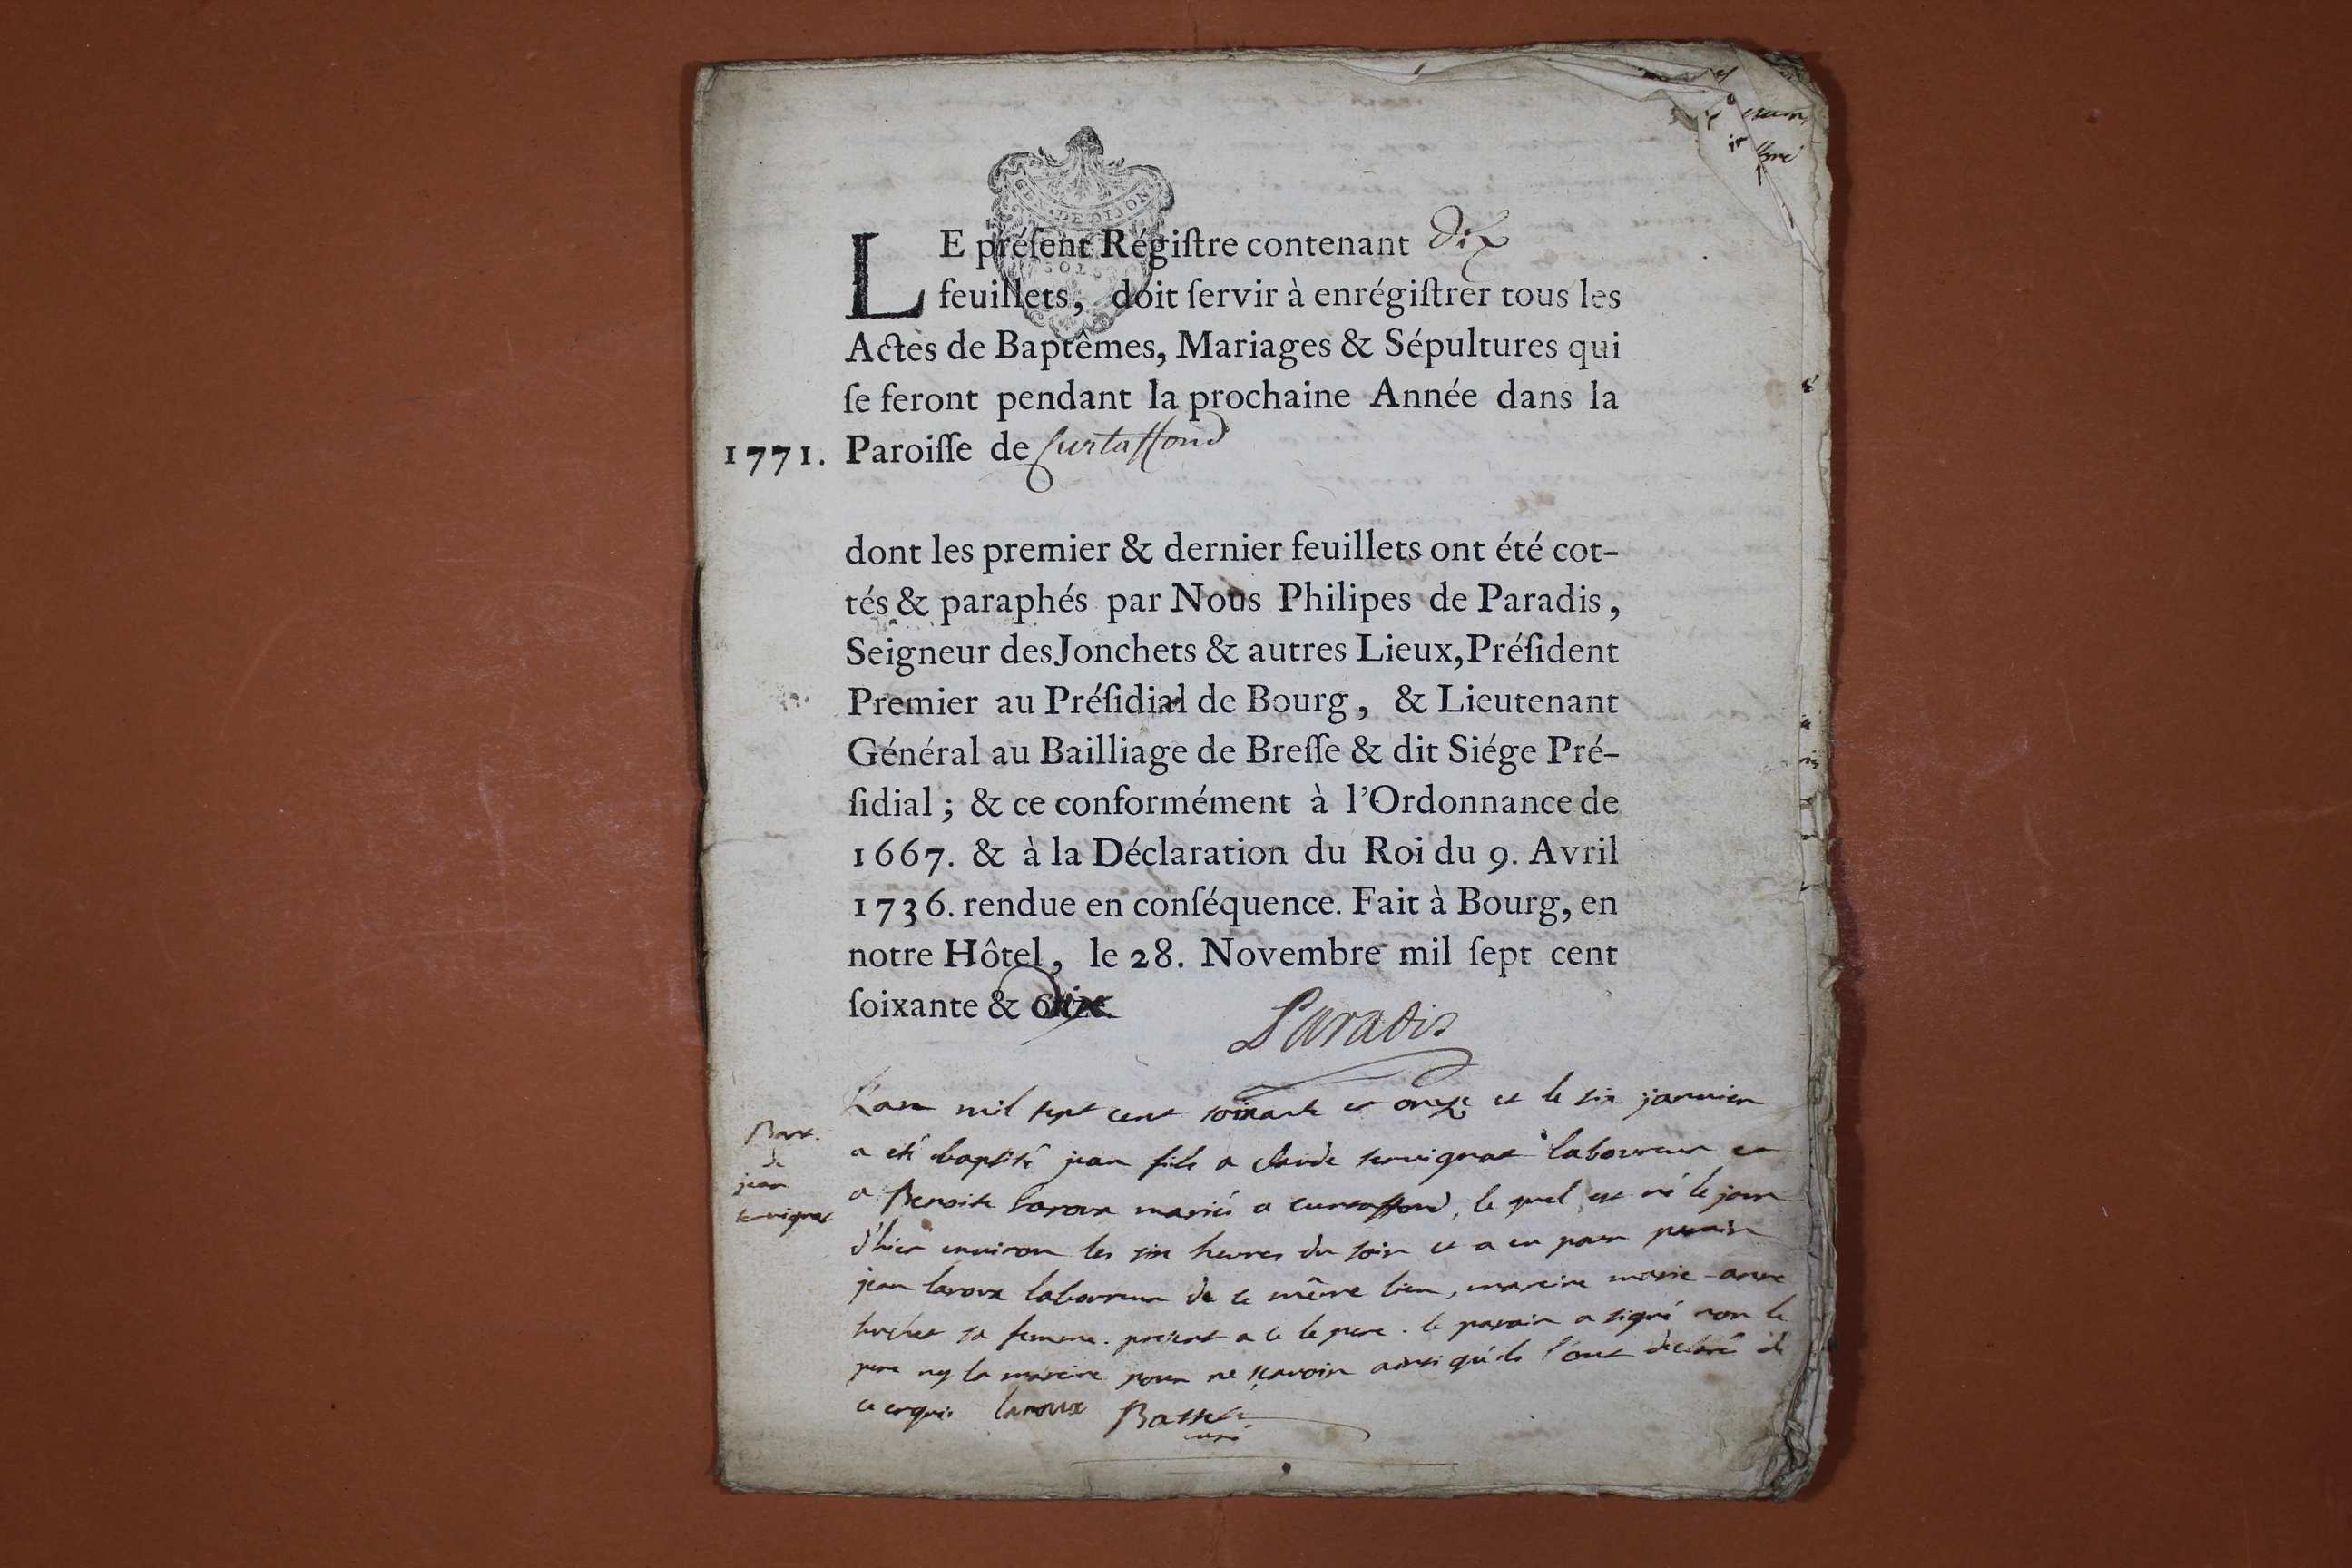 GEN. DE DIJON
LE préſent Régiſtre contenant Dix
feuillets, doit ſervir à enrégiſtrer tous les
Actes de Baptêmes, Mariages & Sépultures qui
ſe feront pendant la prochaine Année dans la
1771. Paroiſſe de Curtaffond
dont les premier & dernier feuillets ont été cot-
tés & paraphés par Nous Philipes de Paradis,
Seigneur des Jonchets & autres Lieux, Préſident
Premier au Préſidial de Bourg, & Lieutenant
Général au Bailliage de Breſſe & dit Siége Pré-
ſidial; & ce conformément à l'Ordonnance de
1667. & à la Déclaration du Roi du 9. Avril
1736. rendue en conſéquence. Fait à Bourg, en
notre Hôtel, le 28. Novembre mil ſept cent
ſoixante & Dix
Paradis
Bapt.
de
jean
servignat
L'an mil sept cent soixante et onze et le six janvier
a été baptisé jean fils a claude servignat laboureur et
a Benoite laroux mariés a curtaffond, le quel est né le jour
d'hier environ les six heures du soir et a eu pour parain
jean laroux laboureur de ce même lieu, mareine marie-anne
sa femme. present a ce le pere. le parain a signé non le
pere ny la mareine pour ne sçavoir ainsi qu'ils l'ont declaré de
ce enquis laroux Basset
curé